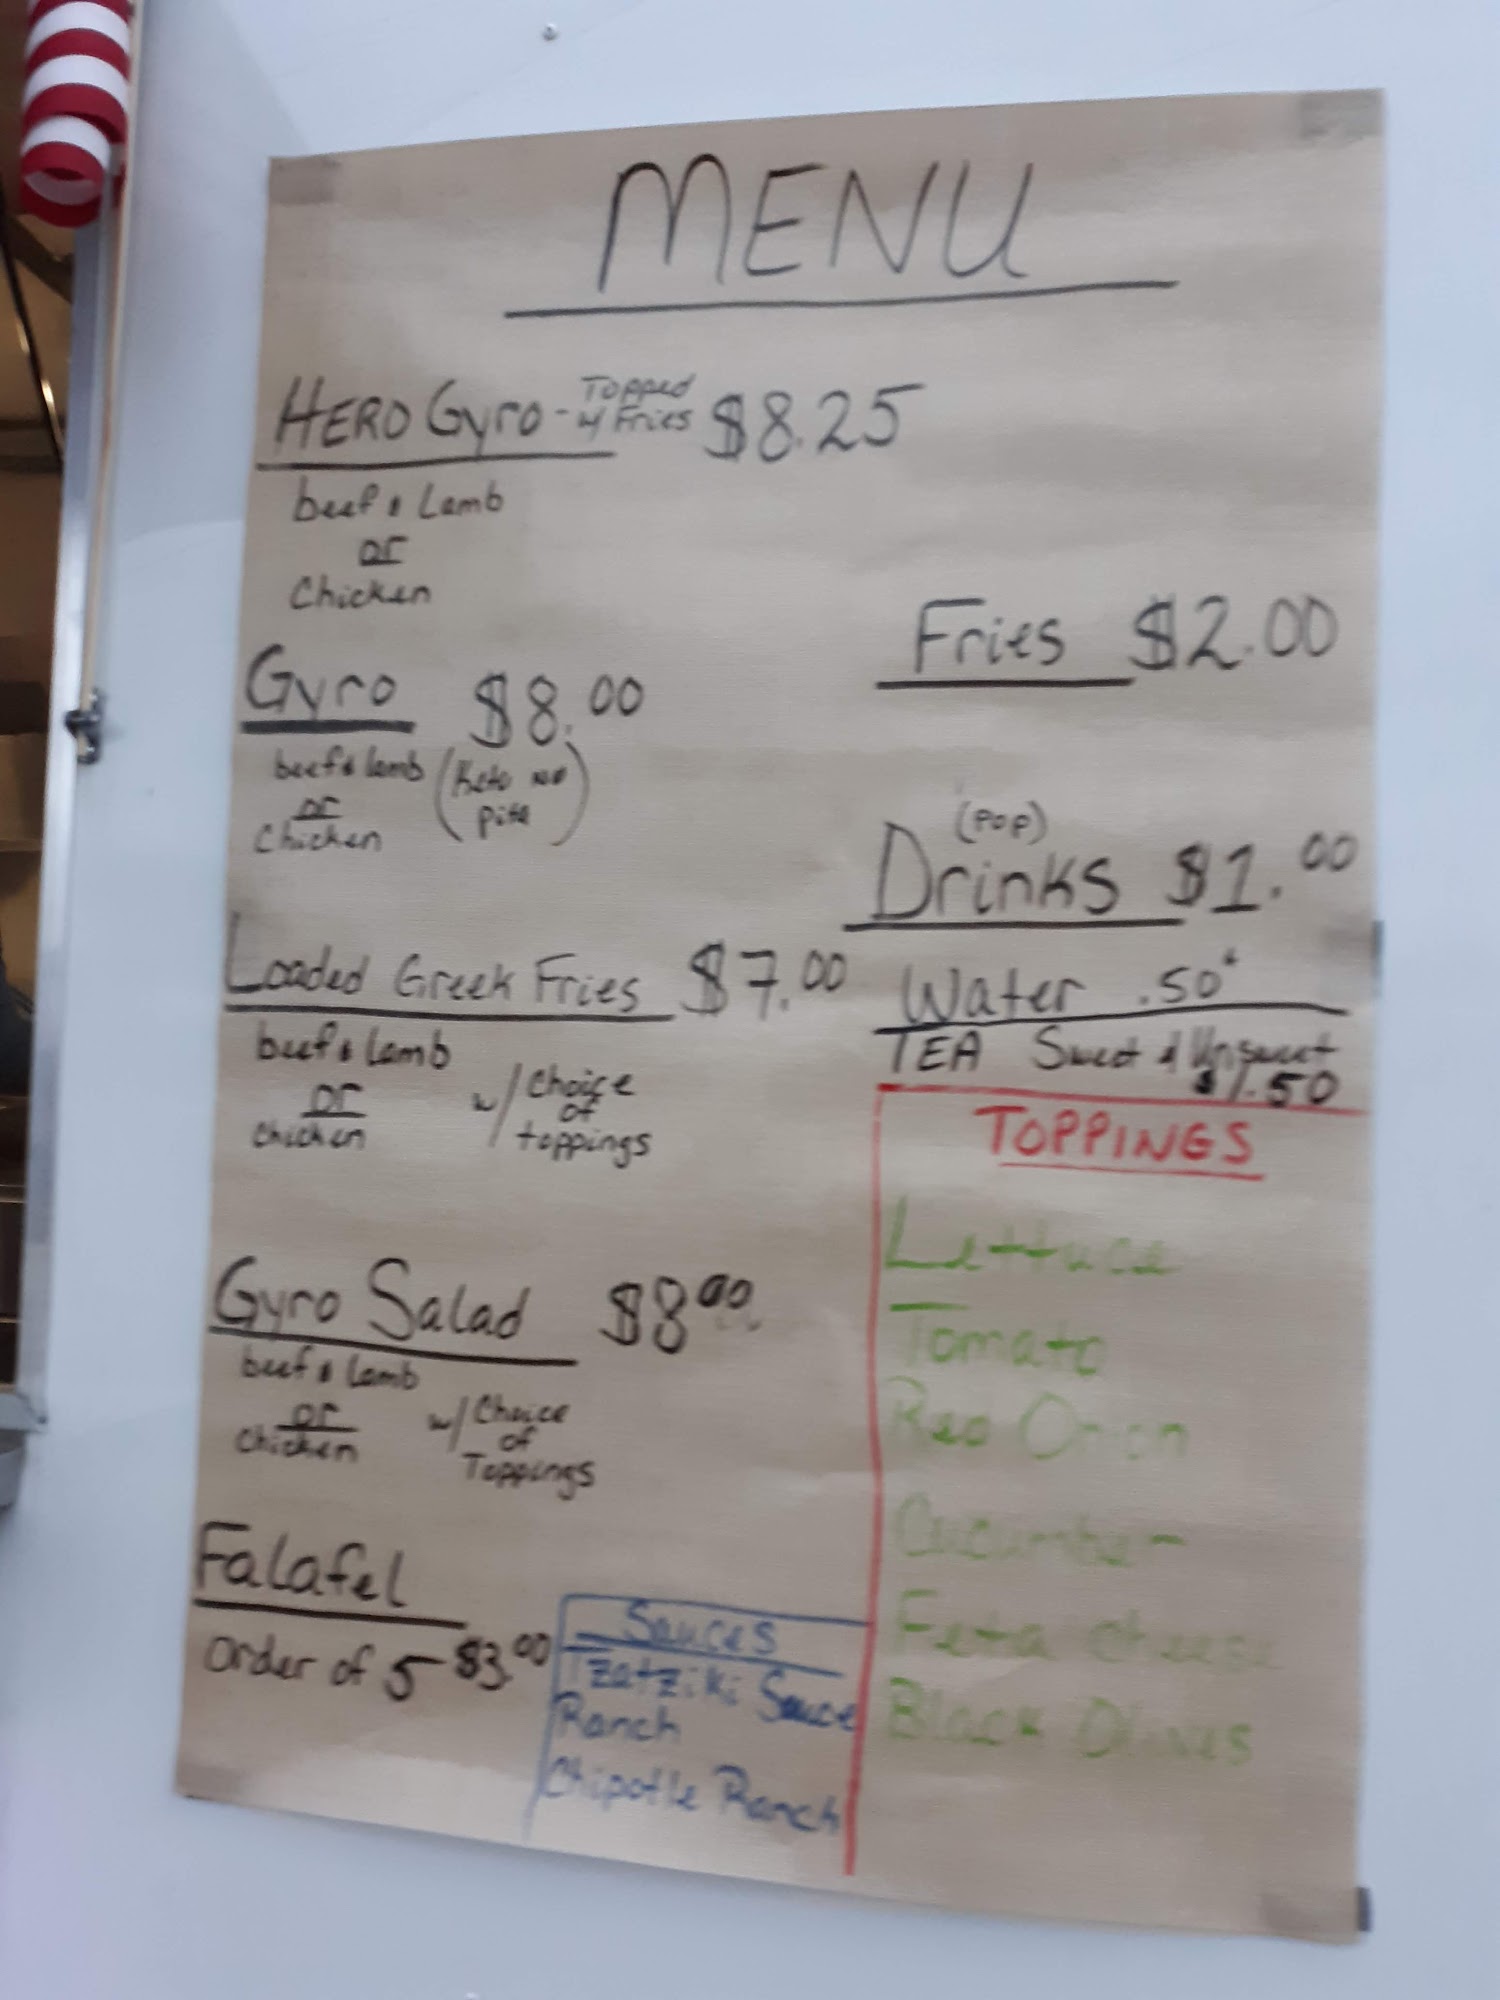 MENU
HERO Gyro - Topped w/ Fries $8.25
beef & Lamb
or
Chicken
Gyro $8.00
beef & lamb (Keto no
or pita)
Chicken
Loaded Greek Fries $7.00
beef & lamb
or w/ Choice
chicken of
toppings
Gyro Salad $8.00
beef & lamb
or w/ Choice
chicken of
Toppings
Falafel
order of 5 $3.00
Fries $2.00
(POP)
Drinks $1.00
Water .50¢
TEA Sweet & Unsweet
$1.50
TOPPINGS
Lettuce
Tomato
Red Onion
Cucumber
Feta cheese
Black Olives
Sauces
Tzatziki Sauce
Ranch
Chipotle Ranch